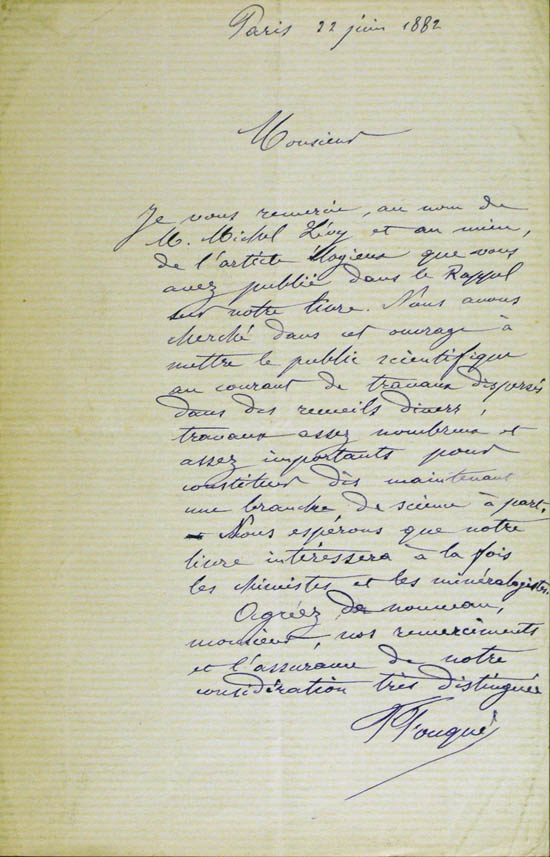 Paris 22 juin 1882
Monsieur
Je vous remercie, au nom de
M. Michel Lévy et au mien,
de l'article élogieux que vous
avez publié dans le Rappel
sur notre livre. Nous avons
cherché dans cet ouvrage à
mettre le public scientifique
au courant de travaux dispersés
dans des recueils divers,
travaux assez nombreux et
assez importants pour
constituer dès maintenant
une branche de science à part.
- Nous espérons que notre
livre intéressera à la fois
les chimistes et les minéralogistes.
Agréez, de nouveau,
monsieur, nos remerciments
et l'assurance de notre
considération très distinguée
F Fouqué